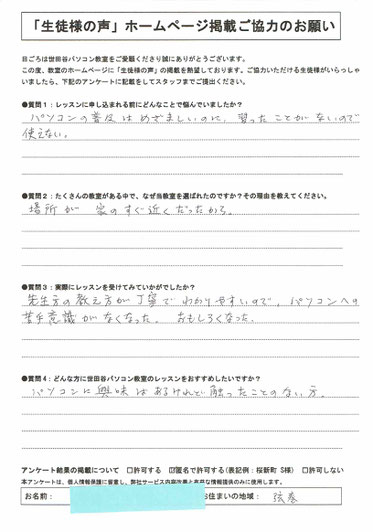 「生徒様の声」ホームページ掲載ご協力のお願い
日ごろは世田谷パソコン教室をご愛顧くださり誠にありがとうございます。
この度、教室のホームページに「生徒様の声」の掲載を熱望しております。ご協力いただける生徒様がいらっしゃ
いましたら、下記のアンケートに記載をしてスタッフまでご提出ください。
●質問1：レッスンに申し込まれる前にどんなことで悩んでいましたか？
パソコンの普及はめざましいのに、習ったことがないので
使えない。
●質問2：たくさんの教室がある中で、なぜ当教室を選ばれたのですか？その理由を教えてください。
場所が 家のすぐ近くだったから。
●質問3：実際にレッスンを受けてみていかがでしたか？
先生方の教え方が丁寧でわかりやすいので、パソコンへの
苦手意識がなくなった。 おもしろくなった。
●質問4：どんな方に世田谷パソコン教室のレッスンをおすすめしたいですか？
パソコンに興味はあるけれど触ったことのない方。
アンケート結果の掲載について □許可する ☑匿名で許可する(表記例：桜新町 S様) □許可しない
本アンケートは、個人情報保護に留意し、弊社サービス内容改善と有益な情報提供のみに使用します。
お名前： お住まいの地域： 弦巻